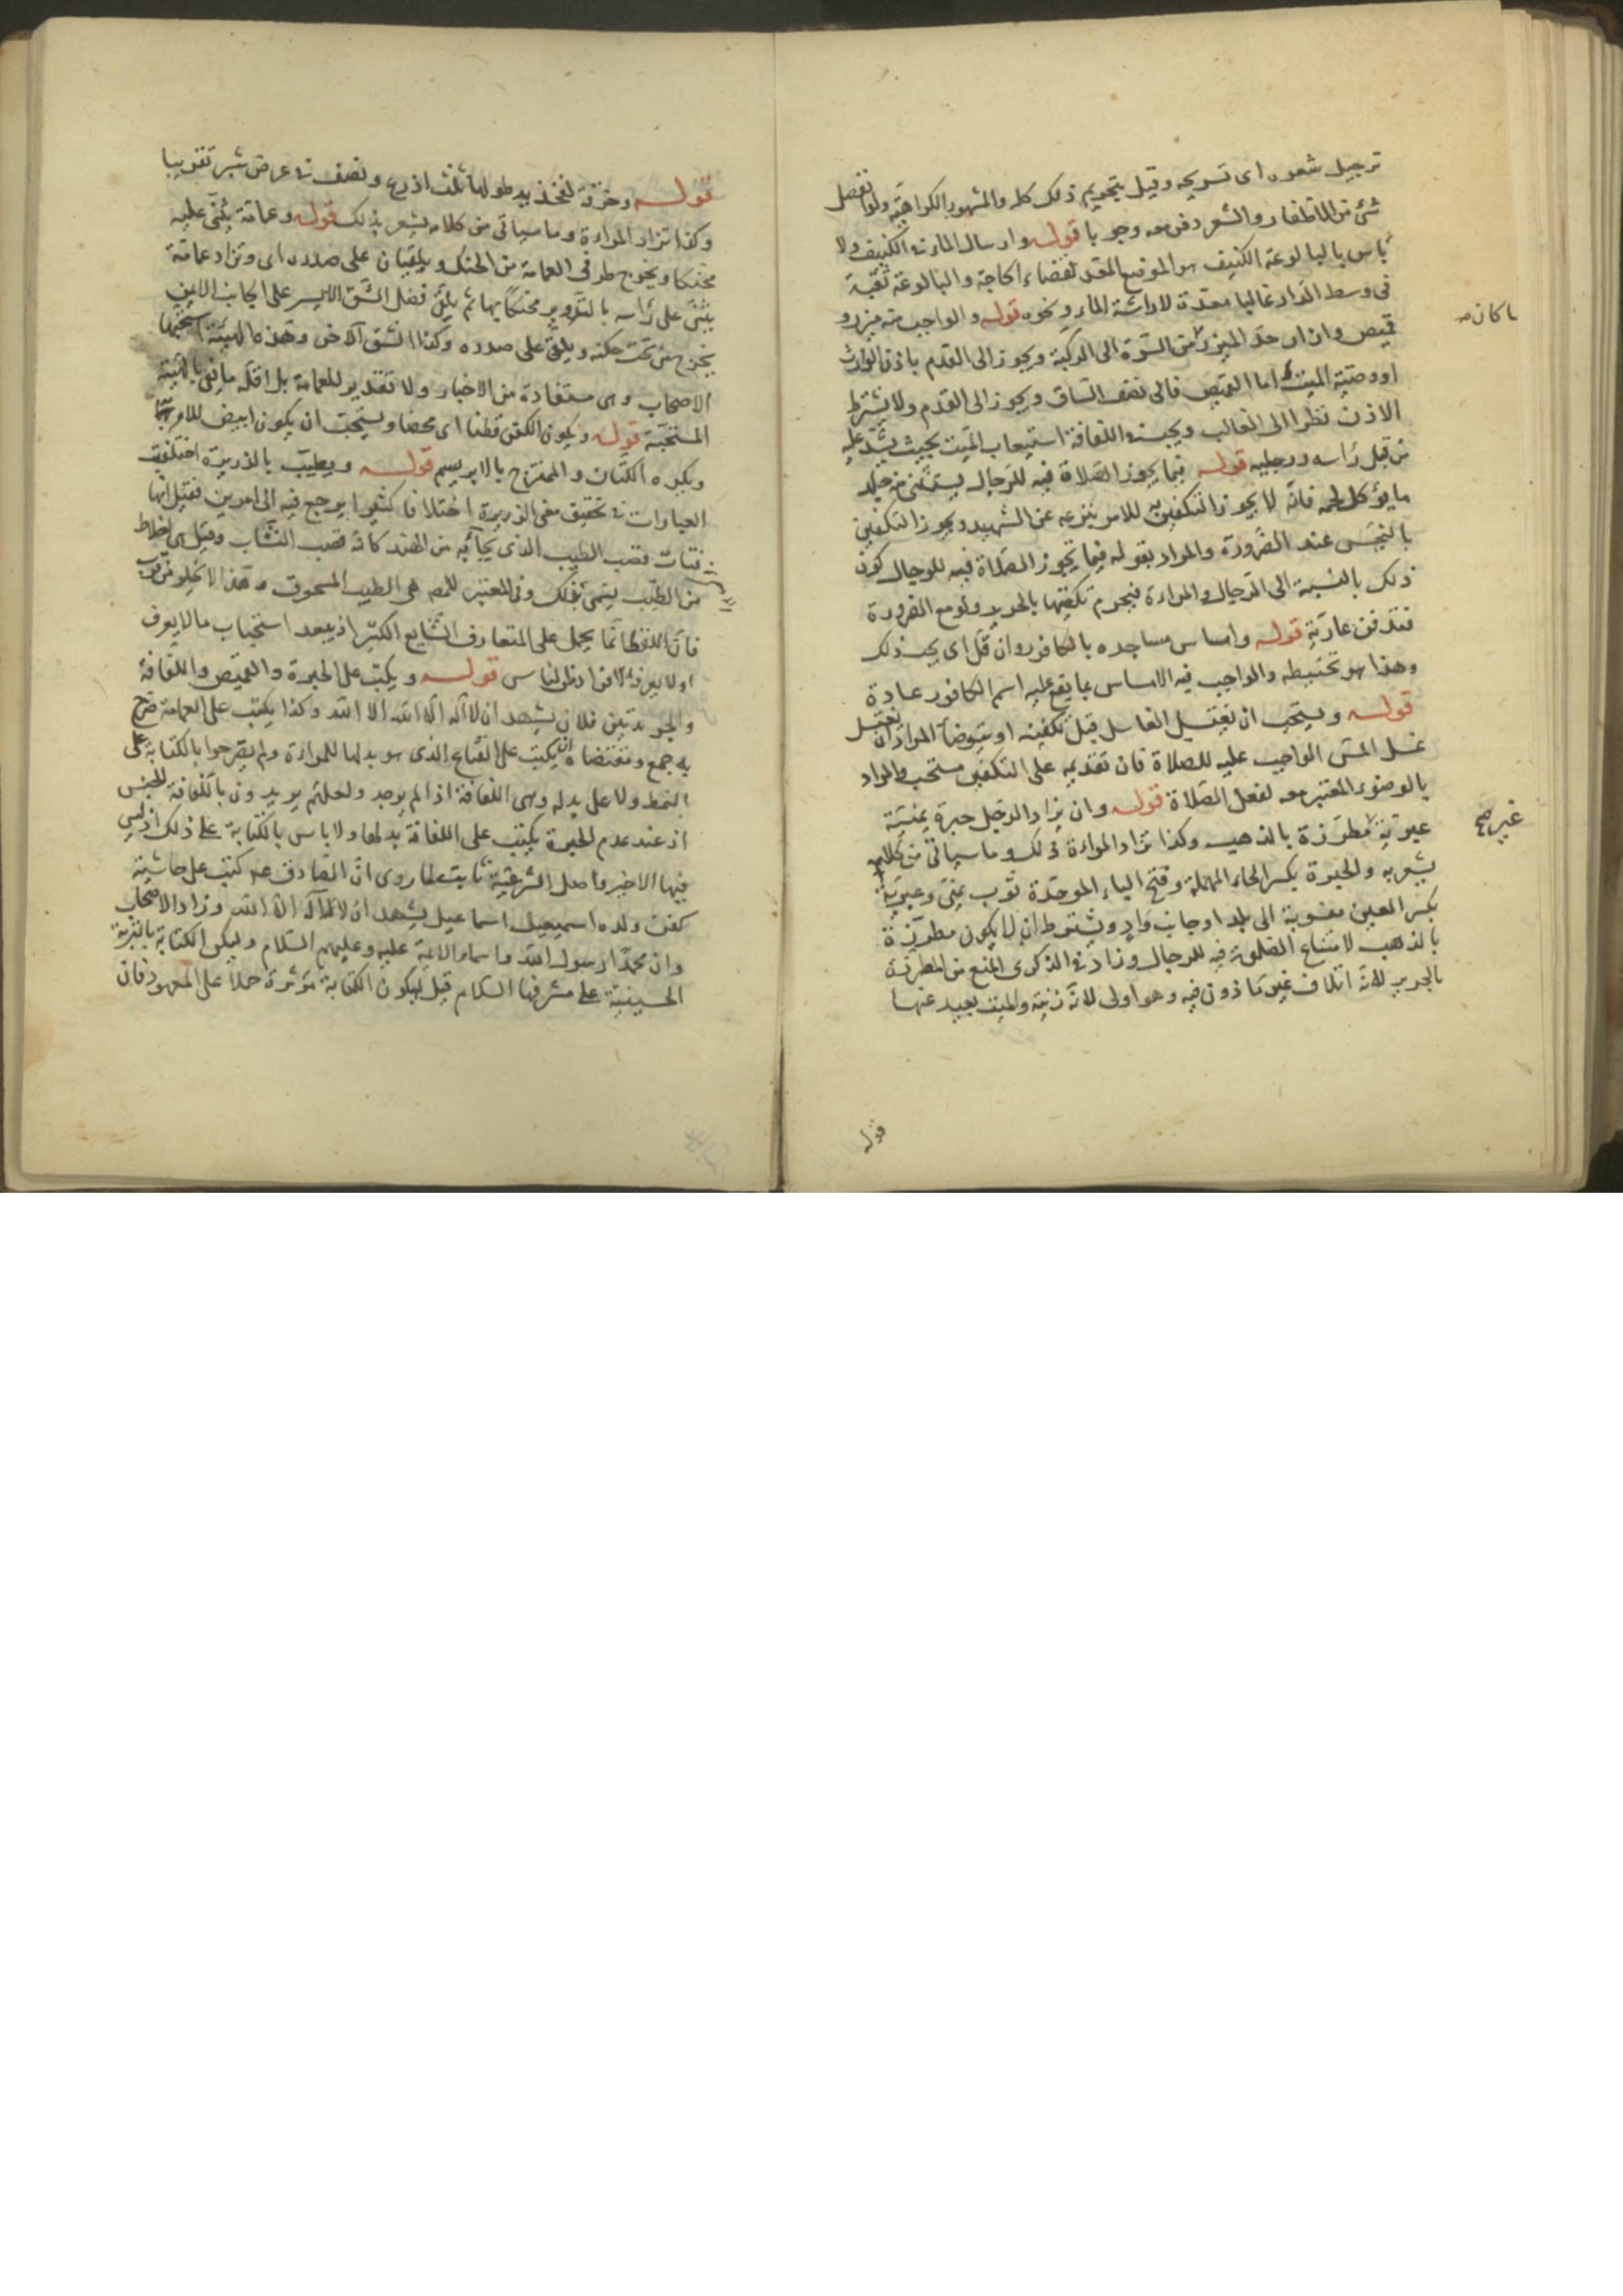 ترجيل شعره اى تسريحه وقيل بتحريم ذلك كله والمشهور الكراهية ولو انفصل
شئ من الاظفار والشعر دفن معه وجوبا قوله وارسال الماء فى الكنيف ولا
باس بالبالوعة الكنيف هو الموضع المعد لقضاء الحاجة والبالوعة ثقبة
فى وسط الدار غالبا معدة لاراقة الماء ونحوه قوله والواجب منه ميزر و
قميص وازار حد الميزر من السرة الى الركبة ويجوز الى القدم باذن الوارث
او وصية الميت اما القميص فالى نصف الساق ويجوز الى القدم ولا يشترط
الاذن نظرا الى الغالب ويجب فى اللفافة استيعاب الميت بحيث يشد عليه
من قبل رأسه ورجليه قوله فيما يجوز الصلاة فيه للرجال يستثنى من جلد
ما يؤكل لحمه فانه لا يجوز التكفين به للامر بنزعه عن الشهيد ويجوز التكفين
بالنجس عند الضرورة والمراد بقوله فيما تجوز الصلاة فيه للرجال كون
ذلك بالنسبة الى الرجال والمراءة فيحرم تكفينها بالحرير ولو مع الضرورة
فتدفن عارية قوله وامساس مساجده بالكافور وان قل اى يجب ذلك
وهذا هو تحنيطه والواجب فيه الامساس بما يقع عليه اسم الكافور عادة
قوله ويستحب ان يغتسل الغاسل قبل تكفينه او يتوضأ المراد ان يغتسل
غسل المس الواجب عليه للصلاة فان تقديمه على التكفين مستحب والمراد
بالوضوء المعتبر معه لفعل الصلاة قوله وان يزاد الرجل حبرة يمنية
عبرية مطرزة بالذهب وكذا تزاد المراءة ذلك وما سياتى من كلامه
يشعر به والحبرة بكسر الحاء المهملة وفتح الباء الموحدة ثوب يمنى وعبرية
بكسر العين منسوبة الى بلد او جانب واد ويشترط ان لا يكون مطرزة
بالذهب لامتناع الصلوة فيه للرجال وزاد فى الذكرى المنع من المطرزة
بالحرير لانه اتلاف غير ماذون فيه وهو اولى لانه زينة والميت بعيد عنها
ما كان
غير صح
قوله
قوله وخرقة لفخذيه طولها ثلث اذرع ونصف فى عرض شبر تقريبا
وكذا تزاد المراءة وما سياتى من كلامه يشعر بذلك قوله وعمامة يثنى عليه
محنكا ويخرج طرفى العمامة من الحنك ويلقيان على صدره اى وتزاد عمامة
يثنى على رأسه بالتدوير محنكا بها ثم يلقى فضل الشق الايسر على الجانب الايمن
يخرج من تحت حنكه ويلقى على صدره وكذا الشق الآخر وهذه الهيئة استحبها
الاصحاب وهى مستفادة من الاخبار ولا تقدير للعمامة بل اقله ما يفى بالهيئة
المستحبة قوله ويكون الكفن قطنا اى محضا ويستحب ان يكون ابيض للامر بها
ويكره الكتان والممتزج بالابريسم قوله ويطيب بالذريرة اختلفت
العبارات فى تحقيق معنى الذريرة اختلافا كثيرا يرجع فيه الى امرين فقيل انها
فتات قصب الطيب الذى يجآء به من الهند كانه قصب النشاب وقيل هى اخلاط
من الطيب يسمى بذلك وفى المعتبر للمص هى الطيب المسحوق وهذا لا يخلو من قرب
فان اللفظ انما يحمل على المتعارف الشايع الكثير اذ يبعد استحباب ما لا يعرف
او لا يعرفه الا افراد من الناس قوله ويكتب على الحبرة والقميص واللفافة
والجريدتين فلان يشهد ان لا اله الا الله وكذا يكتب على العمامة صرح
به جمع ومقتضاه ان يكتب على القناع الذى هو بدلها للمراءة ولم يصرحوا بالكتابة على
النمط ولا على بدله وهى اللفافة اذا لم يوجد ولعلهم يريدون باللفافة الجنس
اذ عند عدم الحبرة يكتب على اللفافة بدلها ولا باس بالكتابة على ذلك اذ ليس
فيها الاخبر واصل الشرعية ثابت لما روى ان الصادق عم كتب على حاشية
كفن ولده اسميعيل اسماعيل يشهد ان لا اله الا الله وزاد الاصحاب
وان محمدا رسول الله واسماء الائمة عليه وعليهم السلام وليكن الكتابة بالتربة
الحسينية على مشرفها السلام قيل ليكون الكتابة مؤثرة حملا على المعهود فان